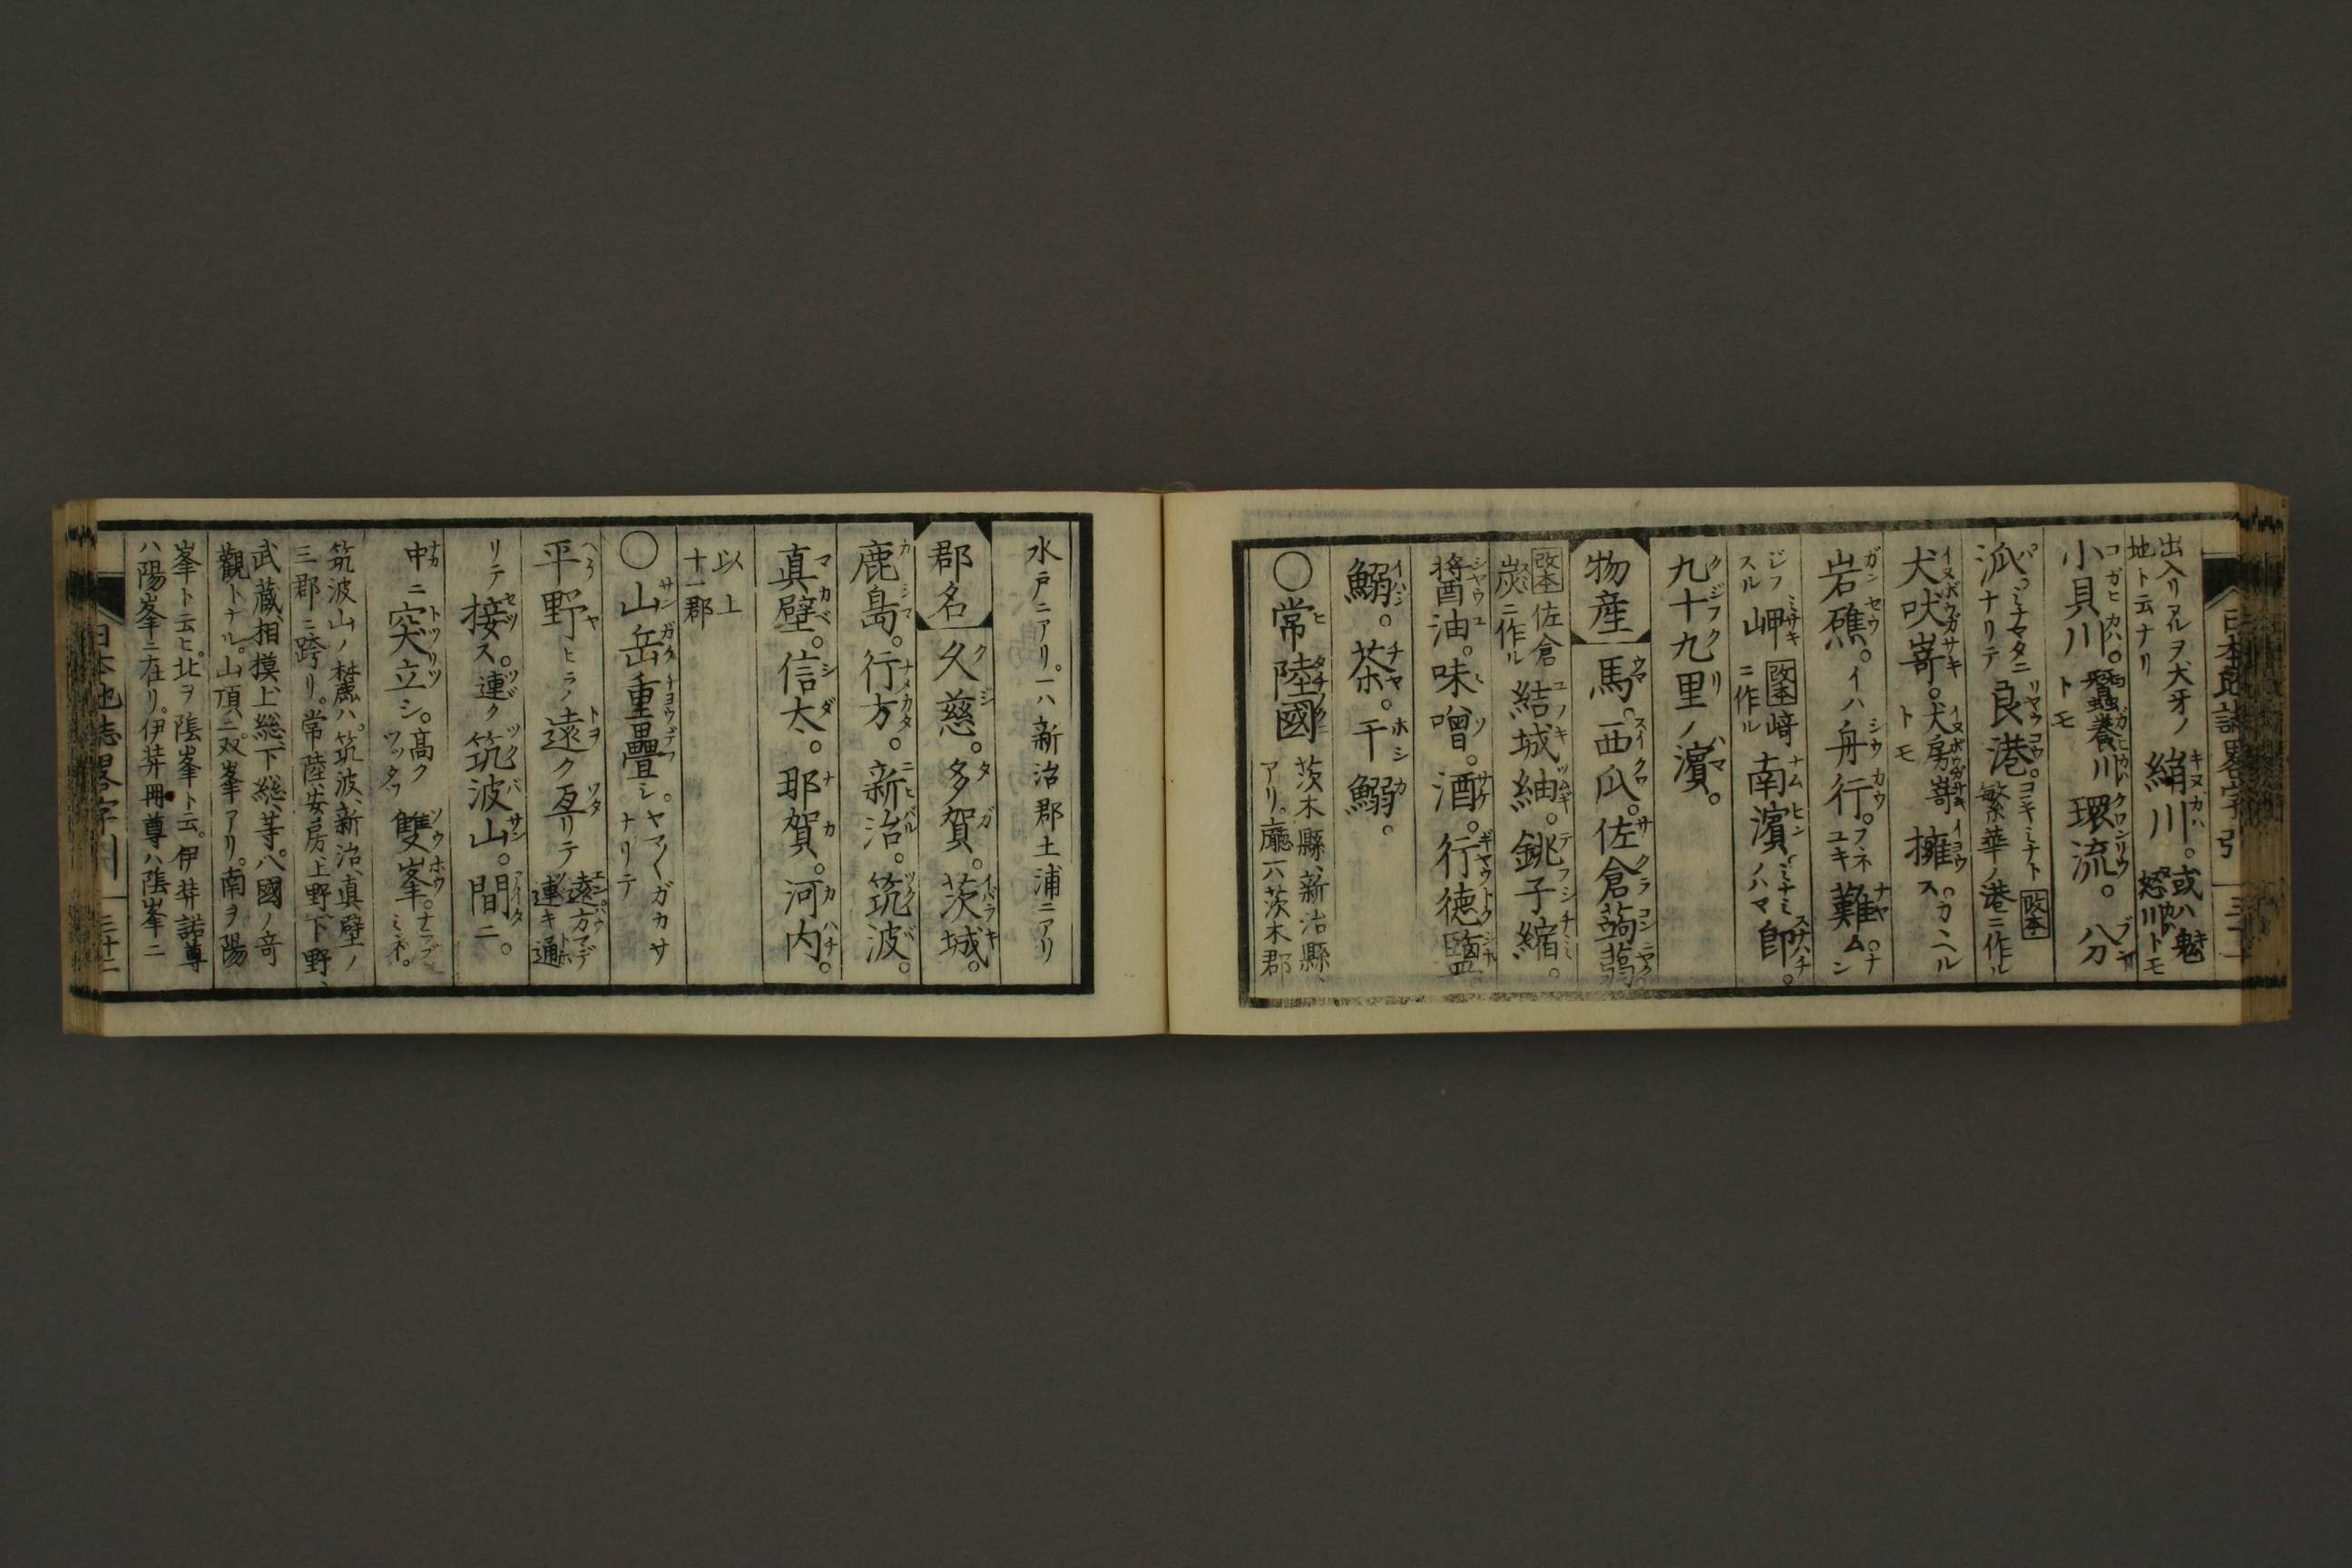 出入リタルヲ犬牙ノ
地ト云ナリ
絹川。或ハ鬼
怒川トモ
小貝川。蠶養川
トモ
環流。八分
派。ミナマタニ
ナリテ
良港。ヨキミナト 改本
繁華ノ港ニ作ル
犬吠嵜。犬房嵜
トモ
擁ス。カヽヘル
岩礁。イハ舟行。フネ
ユキ
難ム。ナ
ン
ジフ
スル
岬 改本 﨑
ニ作ル
南濱。ミナミ
ノハマ
即。
九十九里ノ濱。
物産 馬。西瓜。佐倉蒟蒻。
改本 佐倉
炭ニ作ル
結城紬。銚子縮。
醤油。味噌。酒。行徳鹽。
鰯。茶。干鰯。
〇常陸國 茨木縣、新治縣、
アリ。廳一ハ茨木郡
水戸ニアリ。一ハ新治郡土浦ニアリ
郡名 久慈。多賀。茨城。
鹿島。行方。新治。筑波。
真壁。信太。那賀。河内。
以上
十一郡
〇山岳重疊シ。ヤマ〱ガカサ
ナリテ
平野ヒラノ遠ク亙リテ遠方マデ
連キ通
リテ接ス。連ク筑波山。間ニ。
中ニ突立シ。高ク
ツッタツ
雙峯。ナラブ
ミネ。
筑波山ノ麓ハ。筑波、新治、真壁ノ
三郡ニ跨リ。常陸、安房、上野、下野、
武藏、相摸、上総、下総、等。八國ノ竒
觀トナル。山頂ニ双峯アリ。南ヲ陽
峯ト云ヒ。北ヲ陰峯ト云。伊弉諾尊
ハ陽峯ニ在リ。伊弉冊尊ハ陰峯ニ